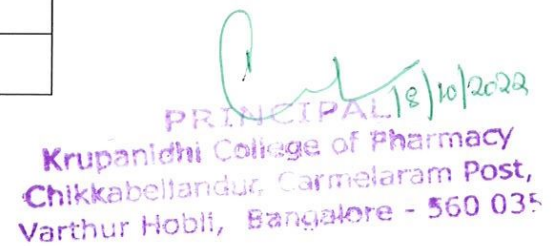 18/10/2022
PRINCIPAL
Krupanidhi College of Pharmacy
Chikkabellandur, Carmelaram Post,
Varthur Hobli, Bangalore - 560 035